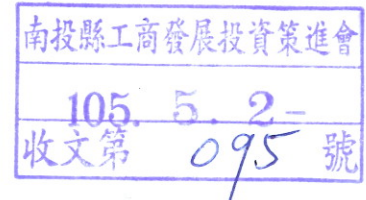 南投縣工商發展投資策進會
105. 5. 2-
收文第 095 號